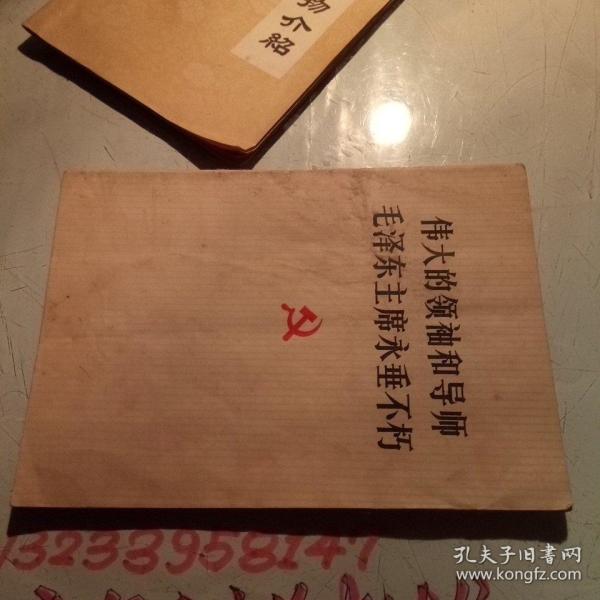 物介紹
伟大的领袖和导师
毛泽东主席永垂不朽
13233958147
孔夫子旧书网
www.kongfz.com